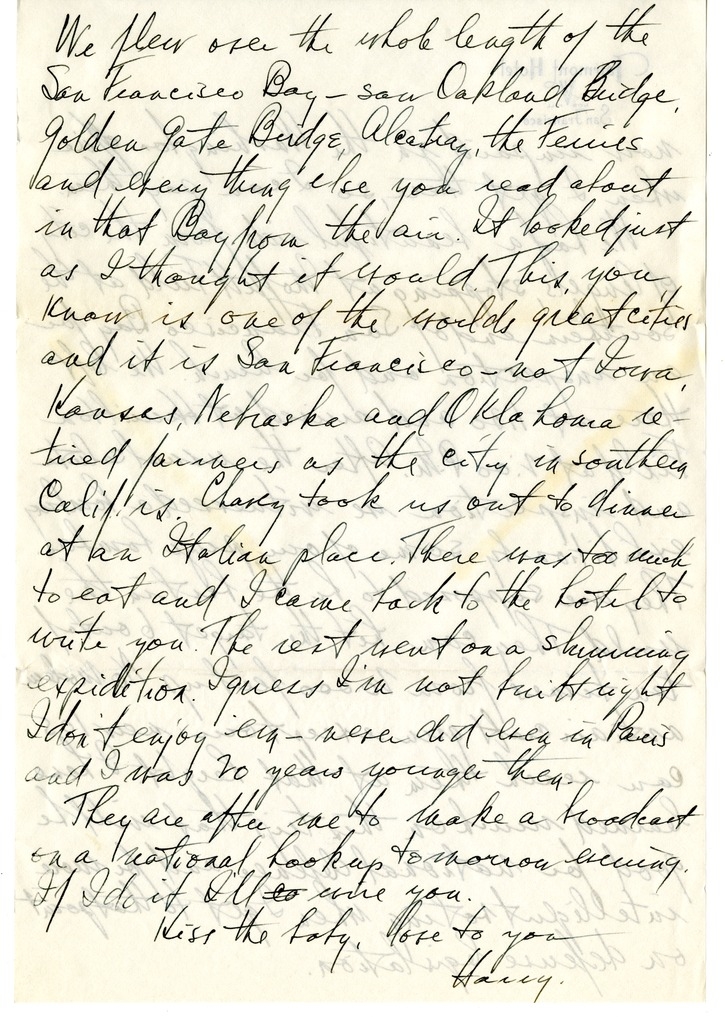 We flew over the whole length of the
San Francisco Bay – saw Oakland Bridge,
Golden Gate Bridge, Alcatraz, the Ferries
and everything else you read about
in that Bay from the air. It looked just
as I thought it would. This, you
know is one of the worlds great cities
and it is San Francisco – not Iowa,
Kansas, Nebraska and Oklahoma re-
tired farmers as the city in southern
Calif. is. Chavey took us out to dinner
at an Italian place. There was too much
to eat and I came back to the hotel to
write you. The rest went on a slumming
expidition. I guess I'm not built right
I don't enjoy 'em – never did even in Paris
and I was 20 years younger then.
They are after me to make a broadcast
on a national hookup tomorrow evening.
If I do it I'll wire you.
Kiss the baby, love to you
Harry.